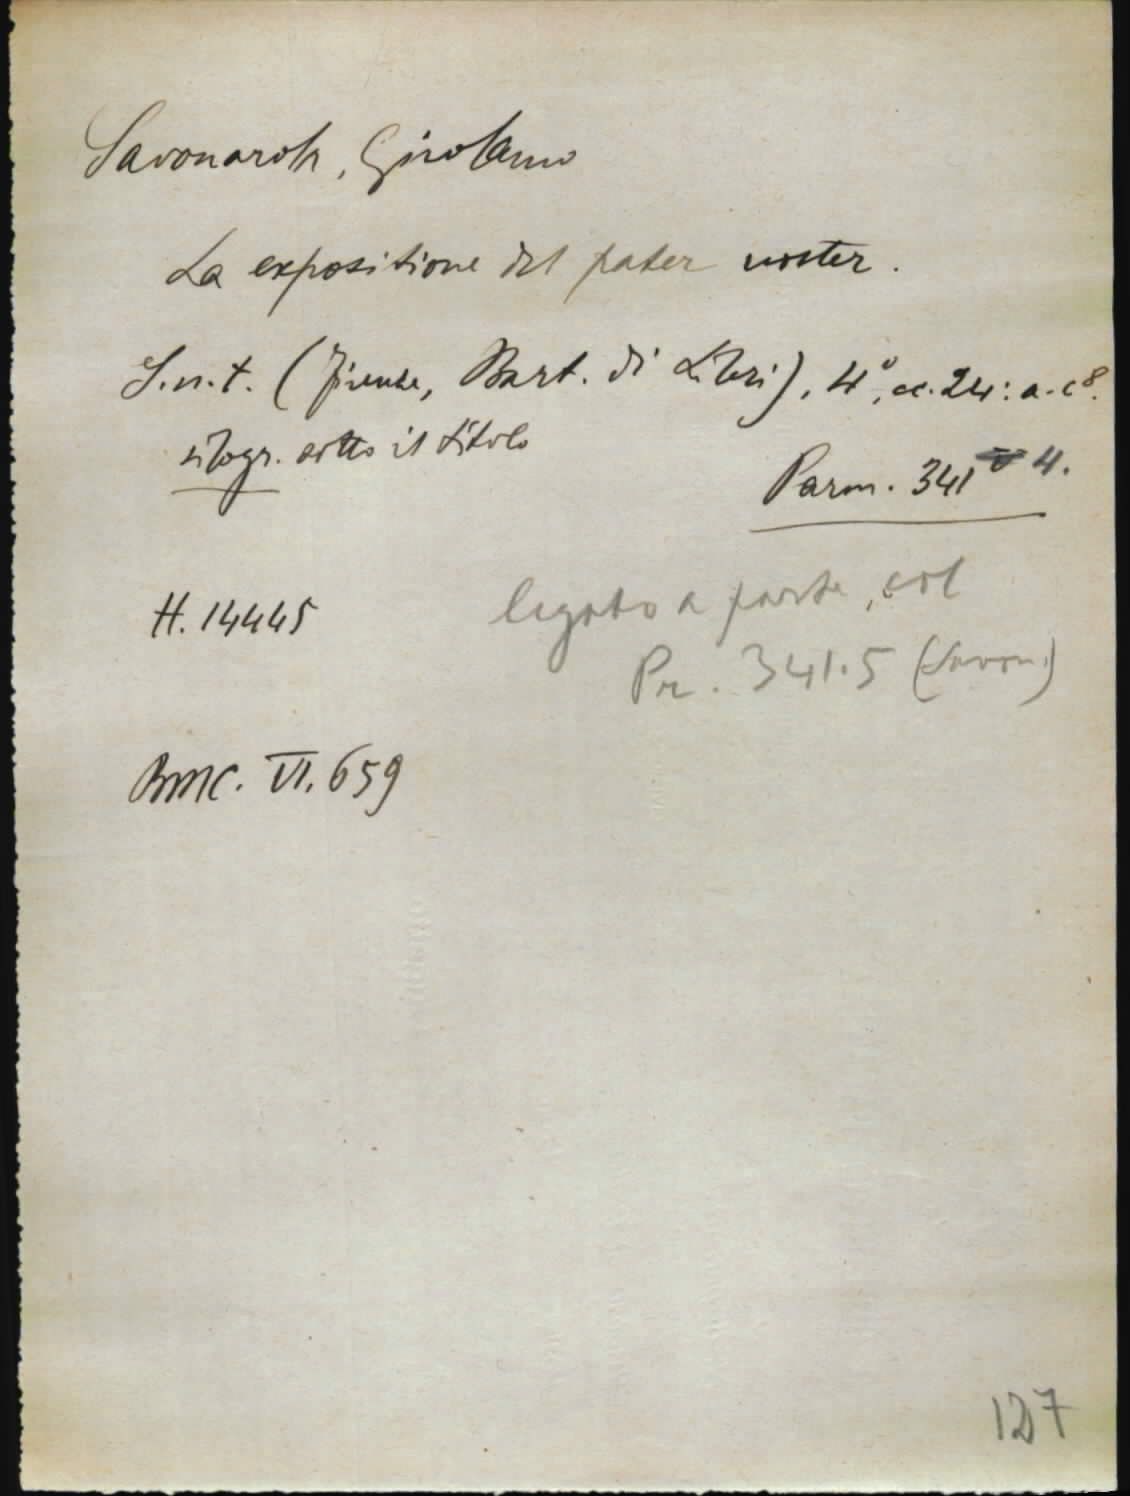 Savonarola, Girolamo
La expositione del pater noster.
S.n.t. (Firenze, Bart. di Libri), 4°, cc. 24: a-c⁸.
silogr. sotto il titolo
Parm. 341 4.
H. 14445
legato a parte, col
Pr. 341.5 (Savon.)
BMC. VI. 659
127